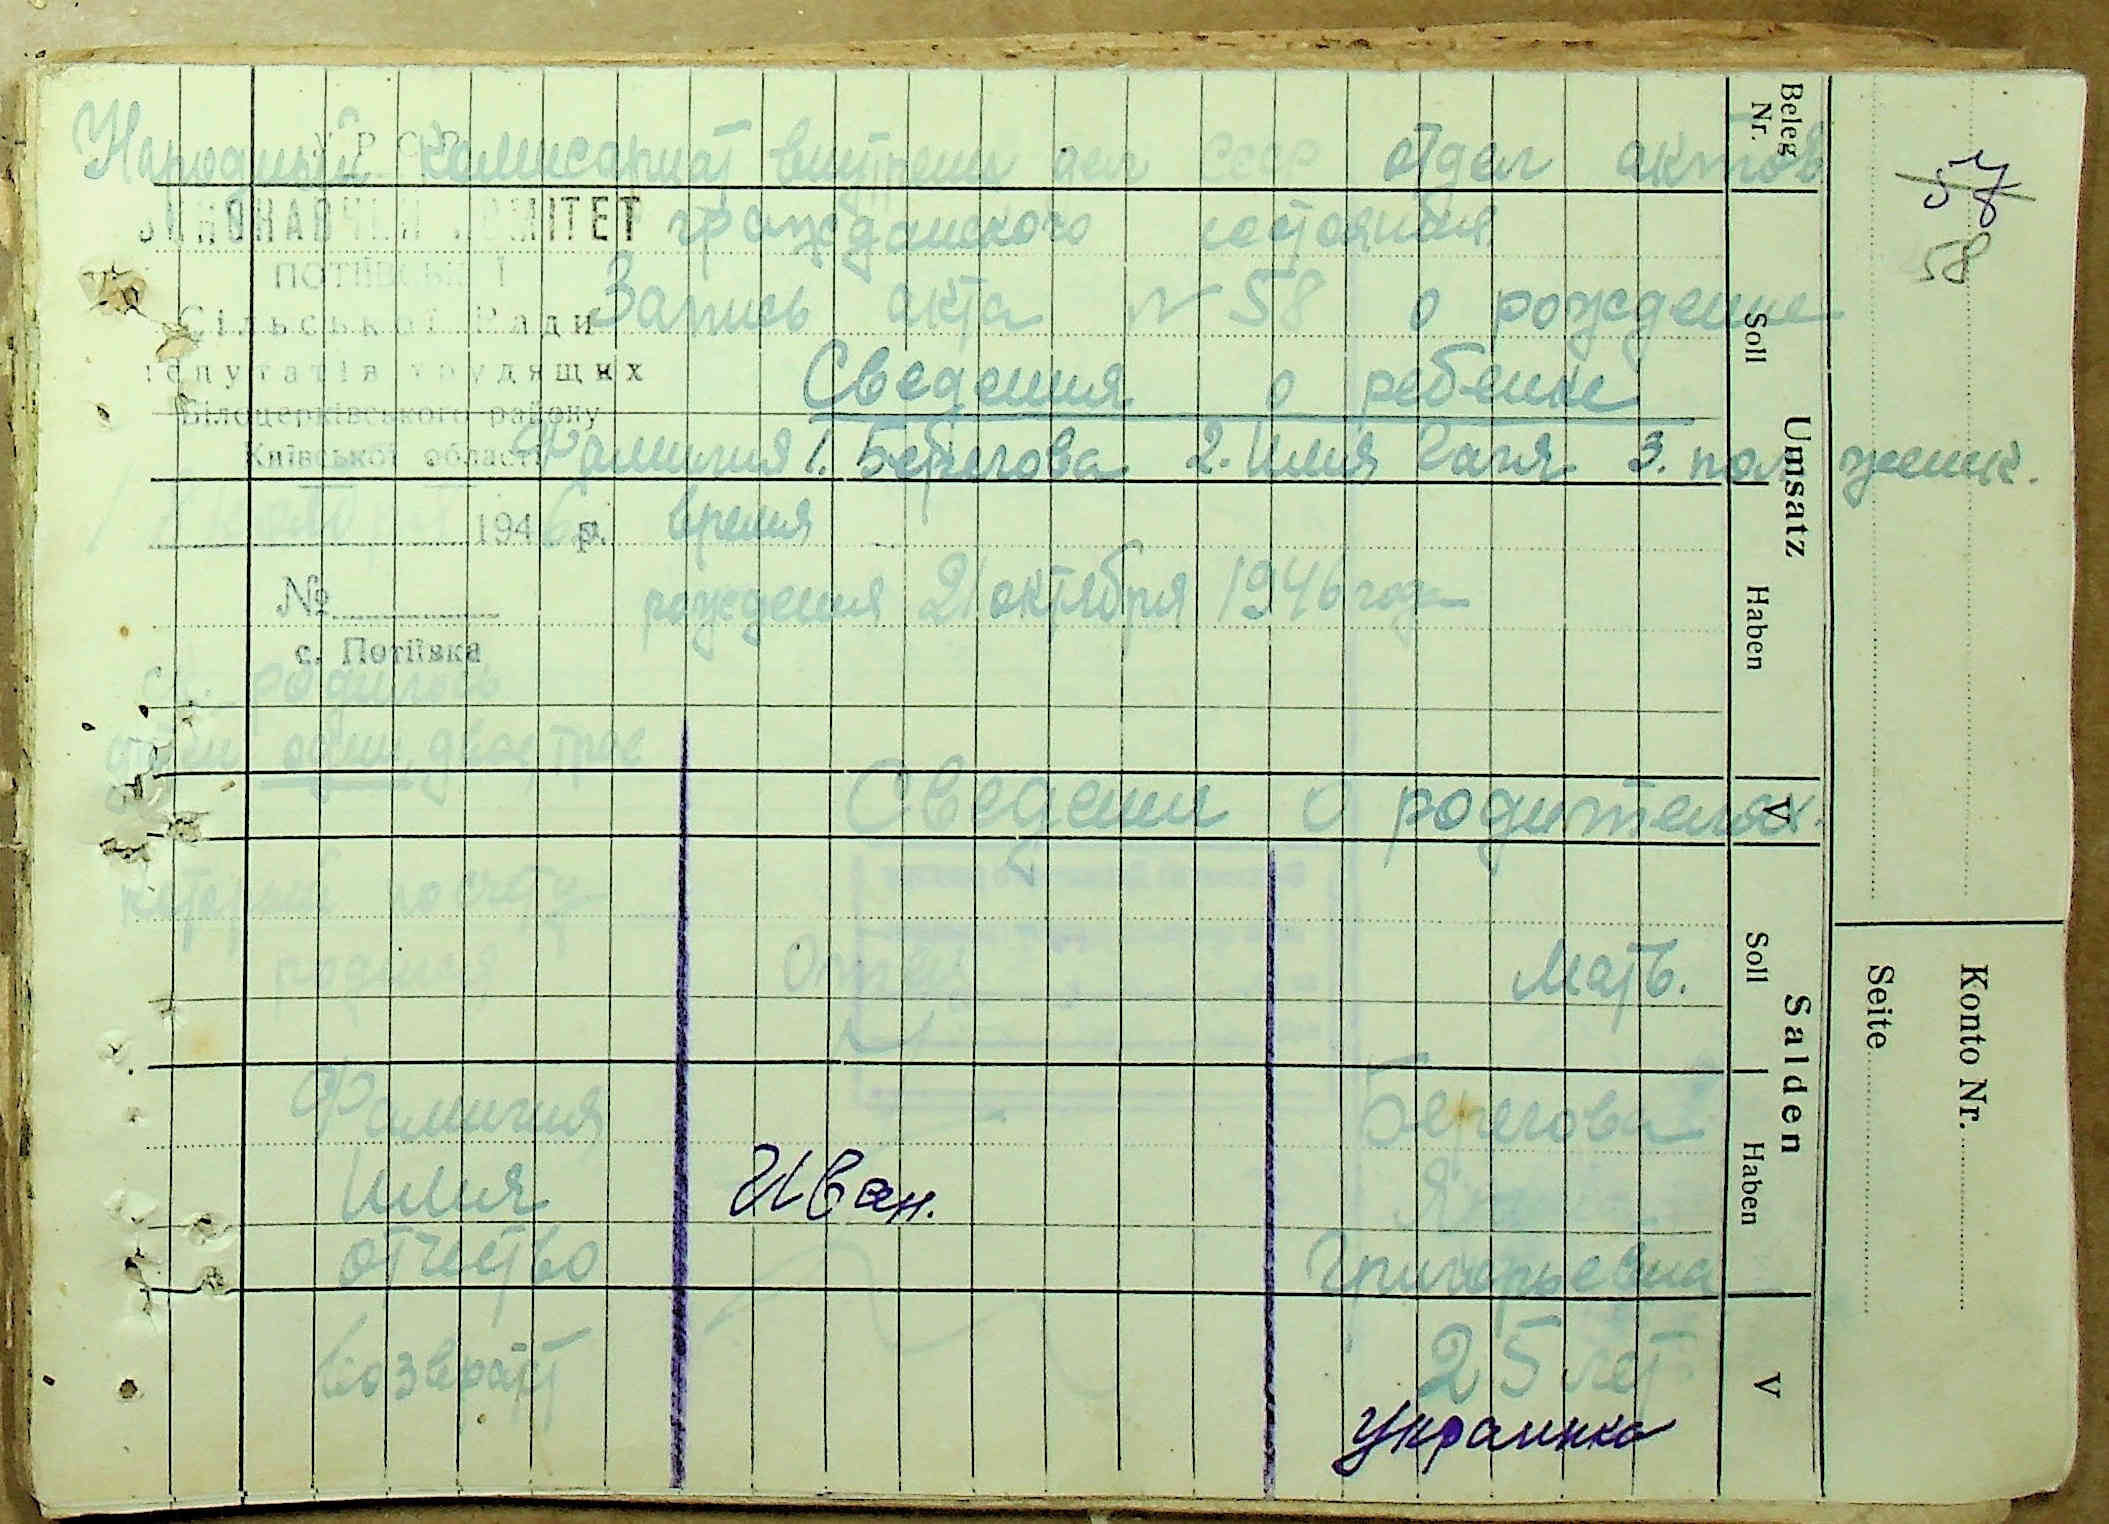 Народный комисариат внутрени дел СССР отдел актов
гражданского состояния
Запись акта N 58 о рождение
Сведения о ребенке
Фамилия 1. Берегова 2. Имя Галя 3. пол женск.
время
рождения 21 октября 1946 года
УРСР
ВИКОНАВЧИЙ КОМІТЕТ
ПОТІЇВСЬКОЇ
Сільської Ради
депутатів трудящих
Білоцерківського району
Київської області
1946 р.
№
с. Потіївка
родилось
один, двое, трое
Сведении о родителях.
который по счету
родился
Отец
Мать.
Фамилия
Берегова
Имя
Иван.
отчество
Григорьевна
возврат
25 лет
украинка
57
58
Beleg Nr.
Umsatz
Soll
Haben
V
Salden
Soll
Haben
V
Konto Nr.
Seite